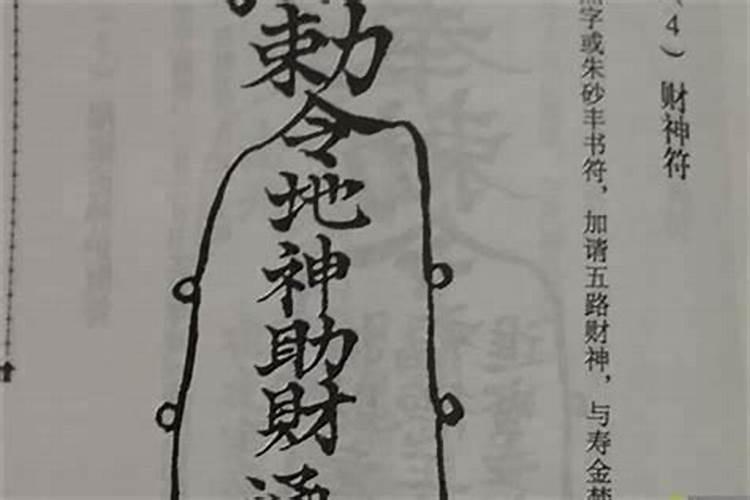 (4) 财神符
字或朱砂丰书符，加请五路财神，与寿金焚
勅令地神助财通